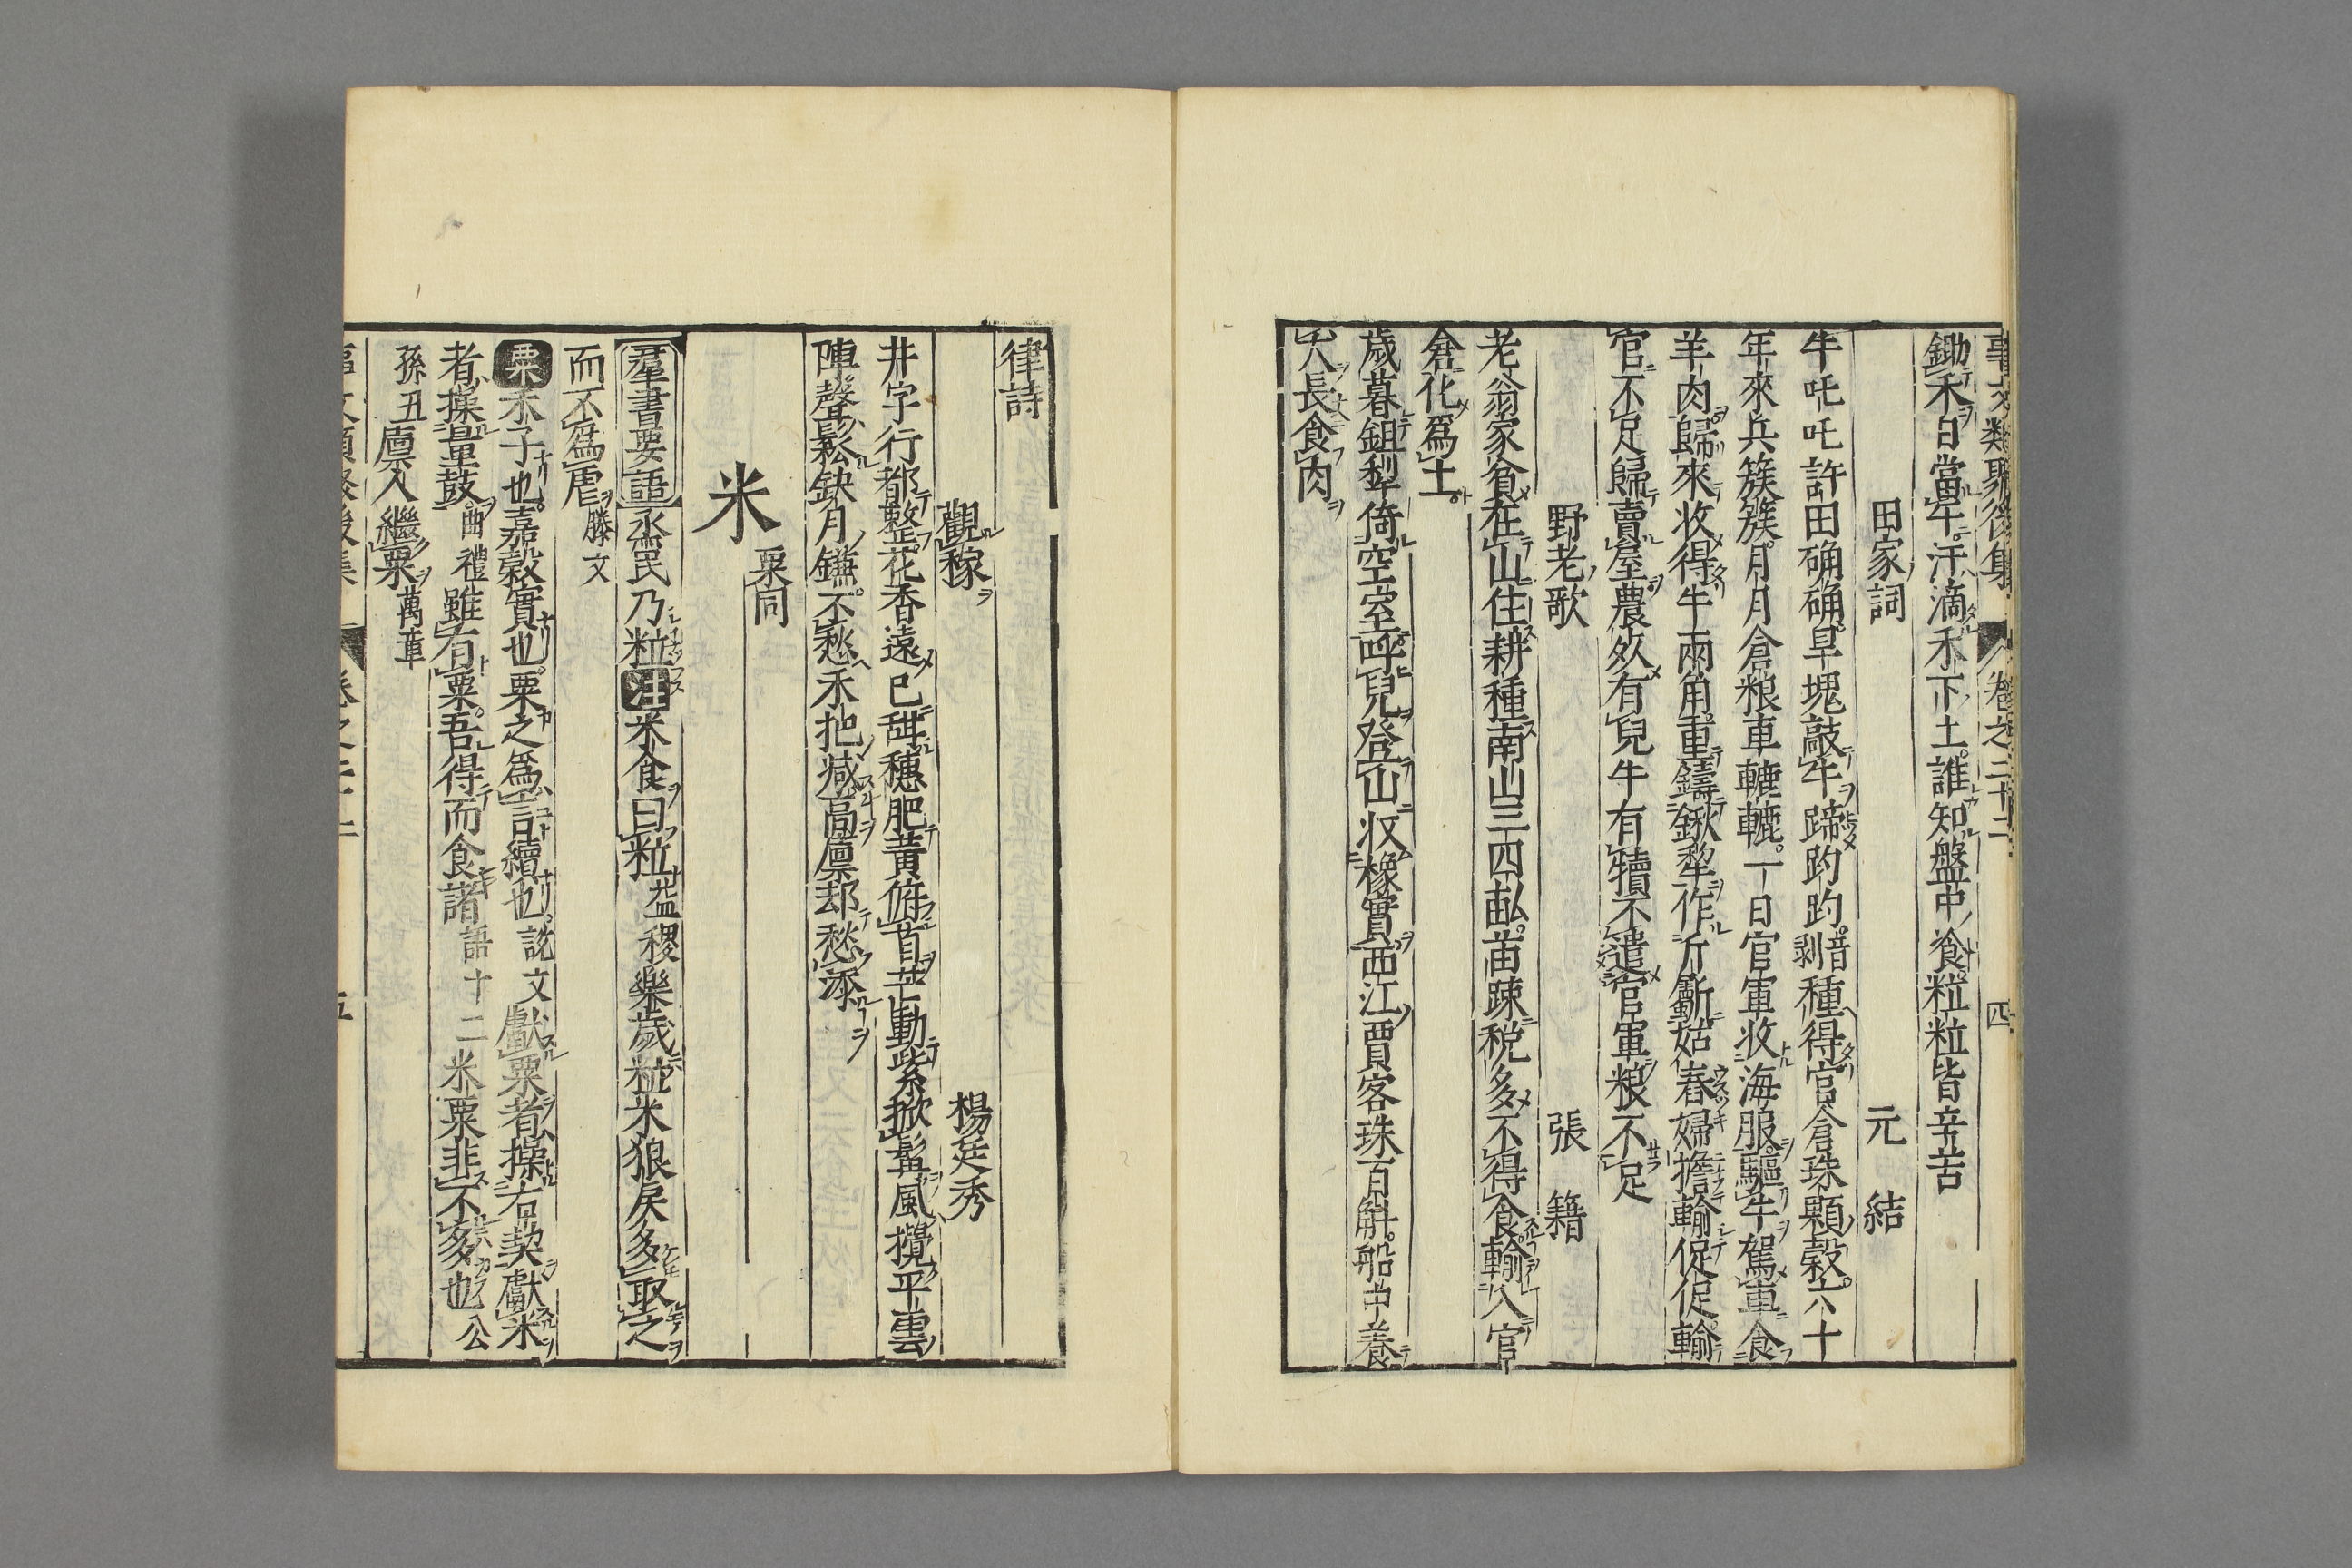 事文類聚後集 卷之二十二 四
鋤禾日當午汗滴禾下土誰知盤中飡粒粒皆辛苦
田家詞 元結
牛吒吒許田确确旱塊敲牛蹄趵趵音剥種得官倉珠顆穀六十
年來兵簇簇月月倉粮車轆轆一日官軍收海服驅牛駕車食
羊肉歸來收得牛兩角重鑄鍬犂作斤斸姑舂婦擔輸促促輸
官不足歸賣屋農死有兒牛有犢不遣官軍粮不足
野老歌 張籍
老翁家貧在山住耕種南山三四畝苗踈税多不得食輸入官
倉化爲土
歲暮鉏犁倚空室呼兒登山収橡實西江賈客珠百斛船中養
犬長食肉
律詩
觀稼 楊廷秀
井字行都整花香遠已甜穗肥黃俯首芒動紫掀髯風攪平雲
陣聲鬆缺月鎌不愁禾把减高廩却愁添
米 粟同
羣書要語烝民乃粒注米食曰粒益稷樂歲粒米狼戾多取之
而不爲虐滕文
粟禾子也嘉穀實也粟之爲言續也説文獻粟者操右契獻米
者操量鼓曲禮雖有粟吾得而食諸語十二米粟非不多也公
孫丑廩人繼粟萬章